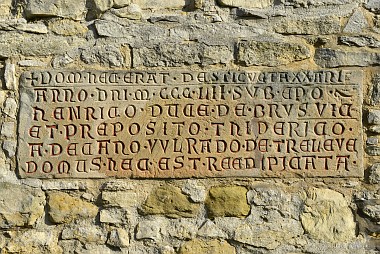 + DOM HEC ERAT DESTICVGTA XX ANIE
ANNO DNI M CCC LIII SVB EPO
HENRICO DVCE DE BRVSVIC
ET PREPOSITO THIDERICO
A DECANO VVLRADO DE TRELEVE
DOMVS HEC EST REEDIPICATA